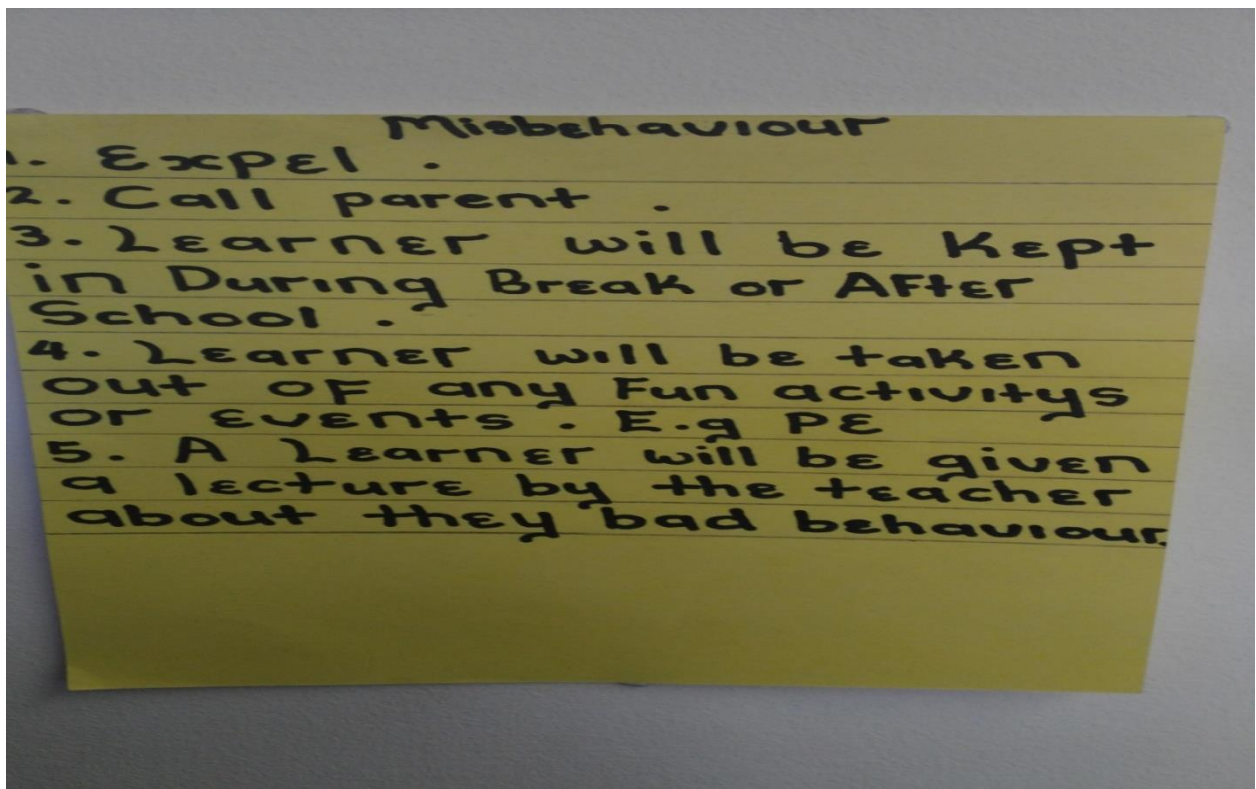 Misbehaviour
1. Expel .
2. Call parent .
3. Learner will be Kept
in During Break or After
School .
4. Learner will be taken
out of any Fun activitys
or events . E.g PE
5. A Learner will be given
a lecture by the teacher
about they bad behaviour.